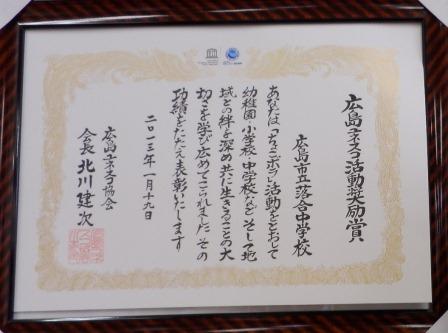 広島ユネスコ活動奨励賞
広島市立落合中学校
あなたは「ちょこボラ」活動をとおして
幼稚園・小学校・中学校など そして地
域との絆を深め共に生きることの大
切さを学び広めてこられました その
功績をたたえ表彰いたします
二〇一三年一月十九日
広島ユネスコ協会
会長 北川建次